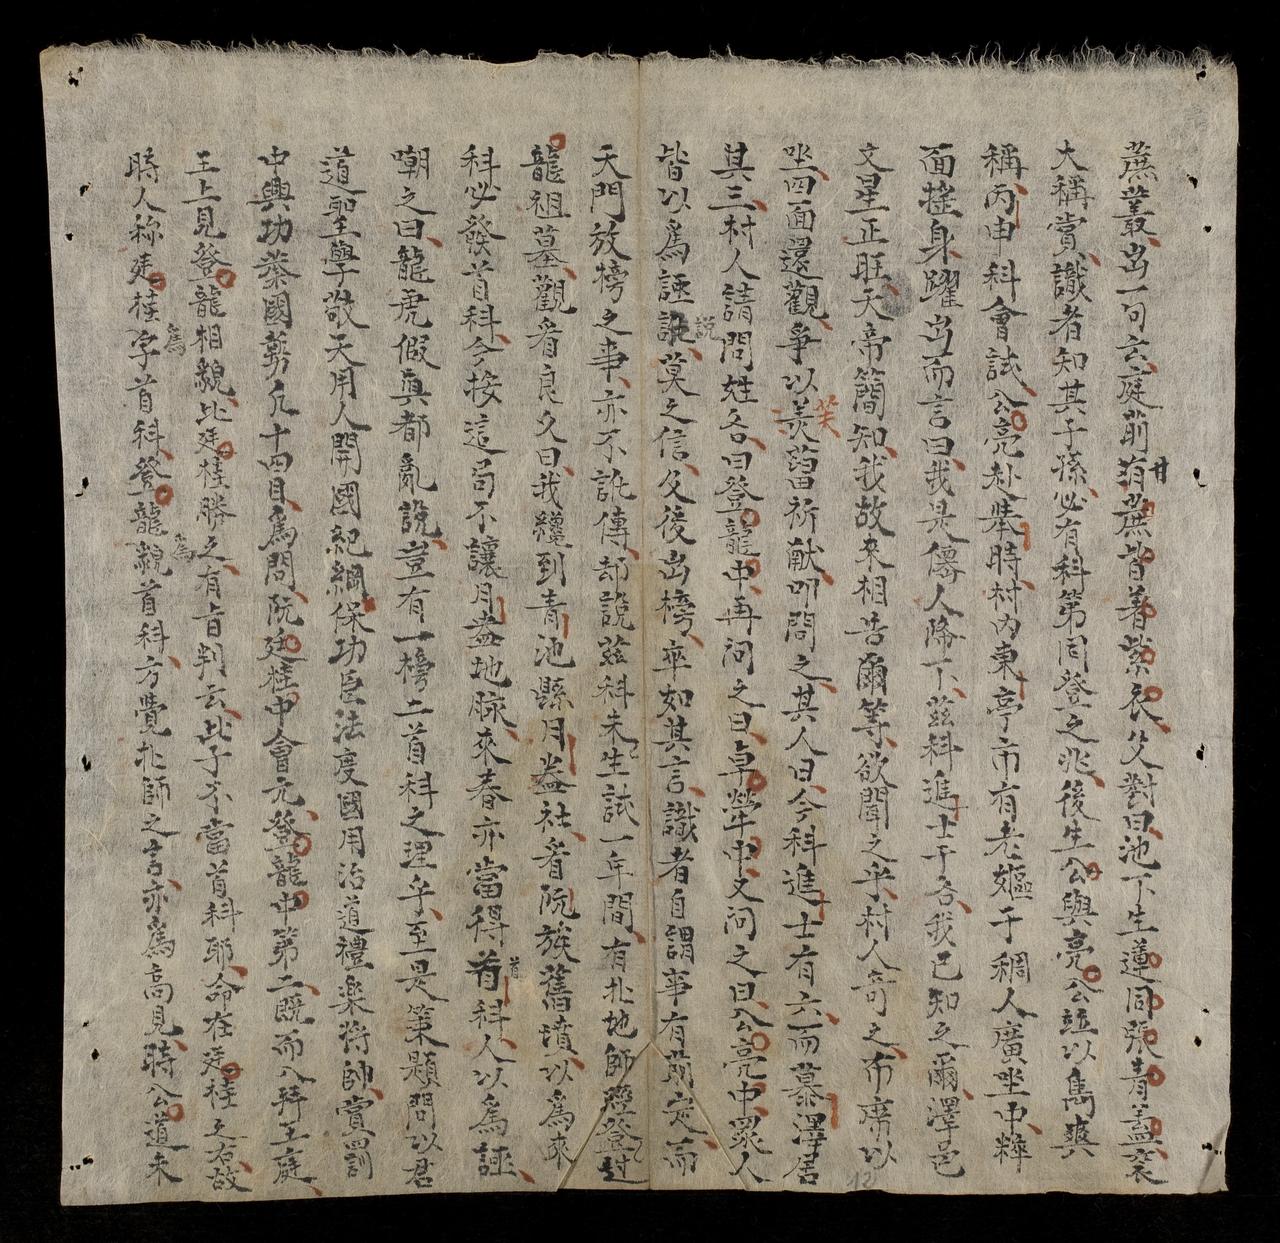 蔗叢出一句云庭前有甘蔗皆着紫衣父對曰池下生蓮同張青盖裒
大稱賞識者知其子孫必有科第同登之兆後生公與亮公竝以雋爽
稱丙申科會試公亮赴舉時村內東亭市有老嫗于稠人廣坐中粹
面搖身躍出而言曰我是僊人降下茲科進士于名我已知之爾澤邑
文星正旺天帝簡知我故來相告爾等欲聞之乎村人奇之布席以
坐四面還觀爭以芙蒥祈献叩問之其人曰今科進士有六而慕澤居
其三村人請問姓名曰登龍中再问之曰卓犖中又问之曰公亮中眾人
皆以爲誣說莫之信及後出榜卒如其言識者自謂事有前定而
天門放榜之事亦不訛傳却說茲科未生試一年間有北地師歷登过
龍祖墓觀看良久曰我纔到青池縣月盎社看阮族舊墳以爲來
科必發首科今按這局不讓月盎地脉來春亦當得首科人以爲誣
嘲之曰龍虎假真都亂說豈有一榜二首科之理乎至是策題問以君
道聖學敬天用人開國紀綱保功臣法度國用治道禮楽将帥賞罰
中興功業國勢凡十四目爲問阮廷桂中會元登龍中第二既而入拜王庭
王上見登龍相貌比廷桂勝之有旨判云此子不當首科耶命在廷桂之右故
時人称廷桂爲字首科登龍爲貌首科方覺北師之言亦爲高見時公道未
12